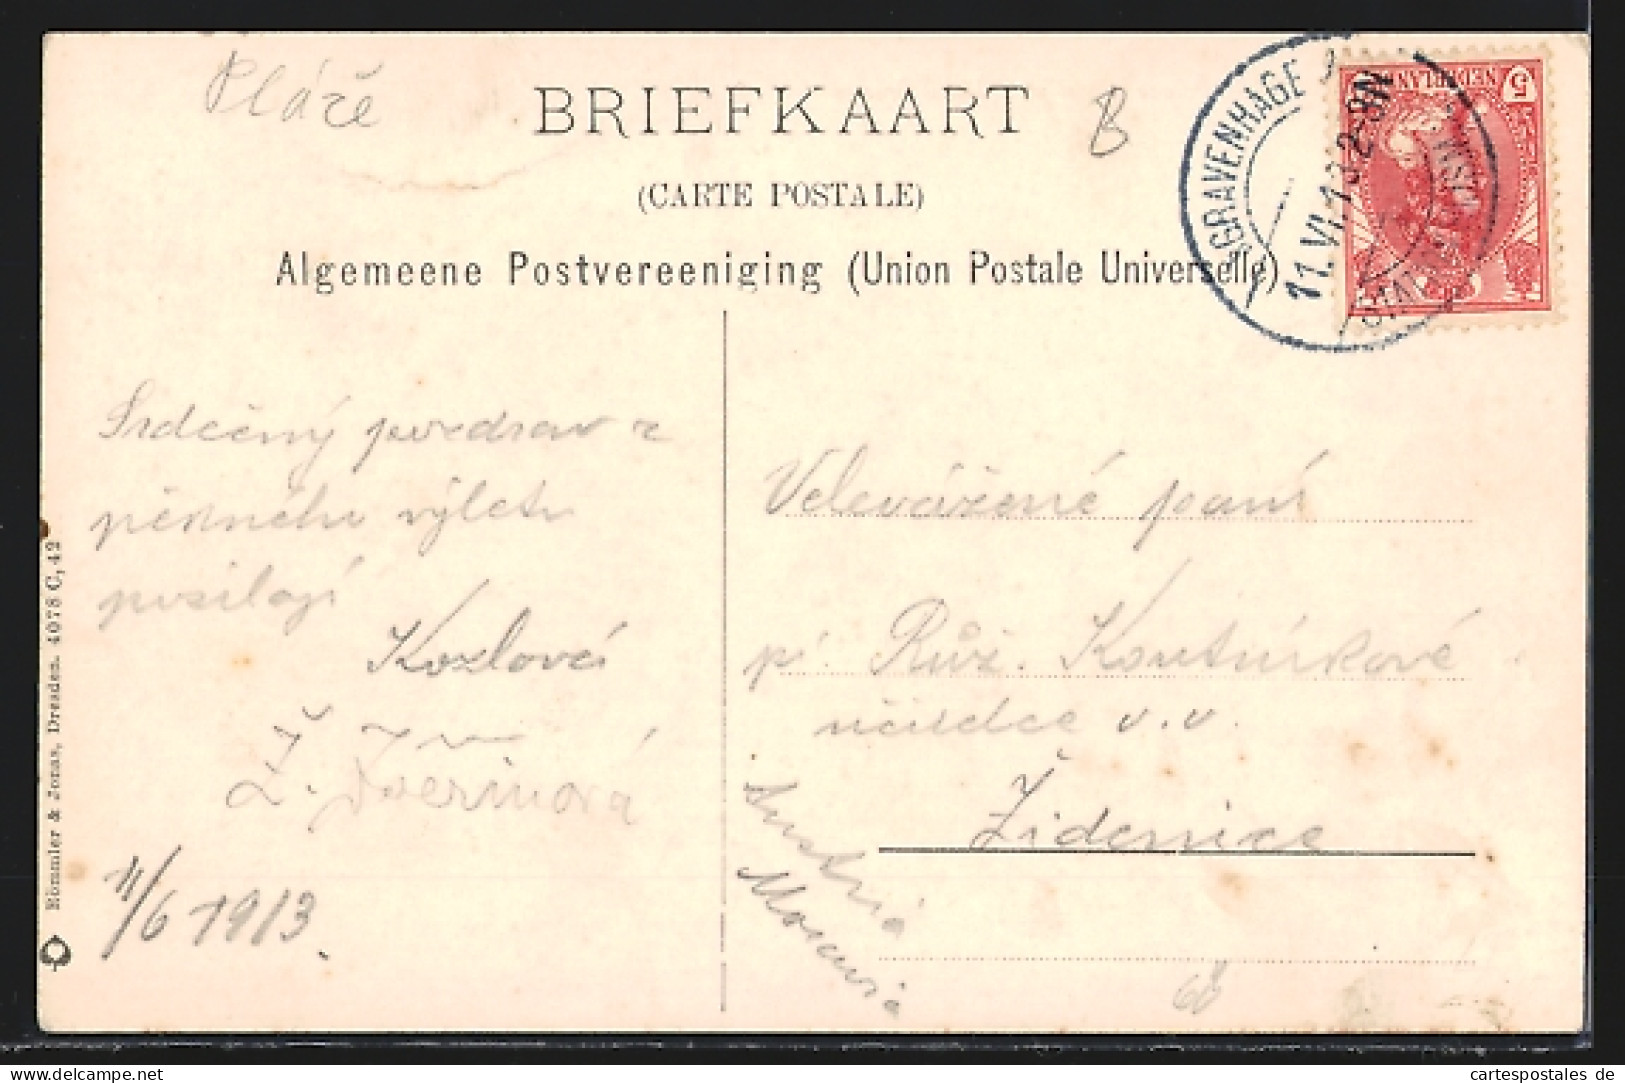 Pláže
BRIEFKAART
8
(CARTE POSTALE)
Algemeene Postvereeniging (Union Postale Universelle)
'SGRAVENHAGE
11.VI.13.2-3N
NEDERLAND
5
Srdečný pozdrav z
pěkného výletu
posílají
Kozlová
Ž. Zvěřinová
11/6 1913.
Velevážené paní
pí Růž. Koutníkové
v.v.
Židenice
Austria
Moravia
Römmler & Jonas, Dresden. 4078 C, 42
cartespostales de